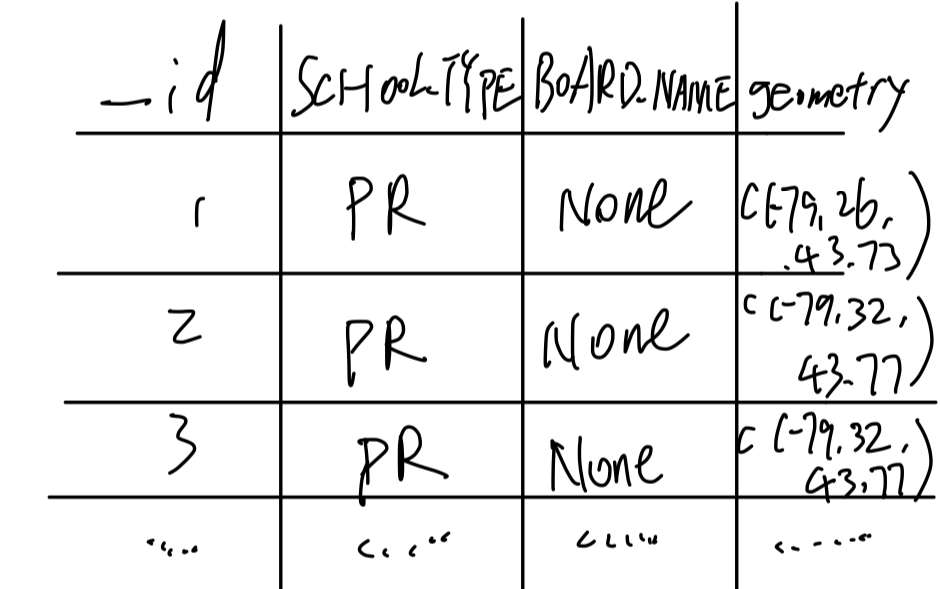 _id SCHOOL-TYPE BOARD-NAME geometry
1 PR None C(-79.26,
.43.73)
2 PR None C(-79.32,
43.77)
3 PR None C(-79.32,
43.77)
..... ..... ..... ......